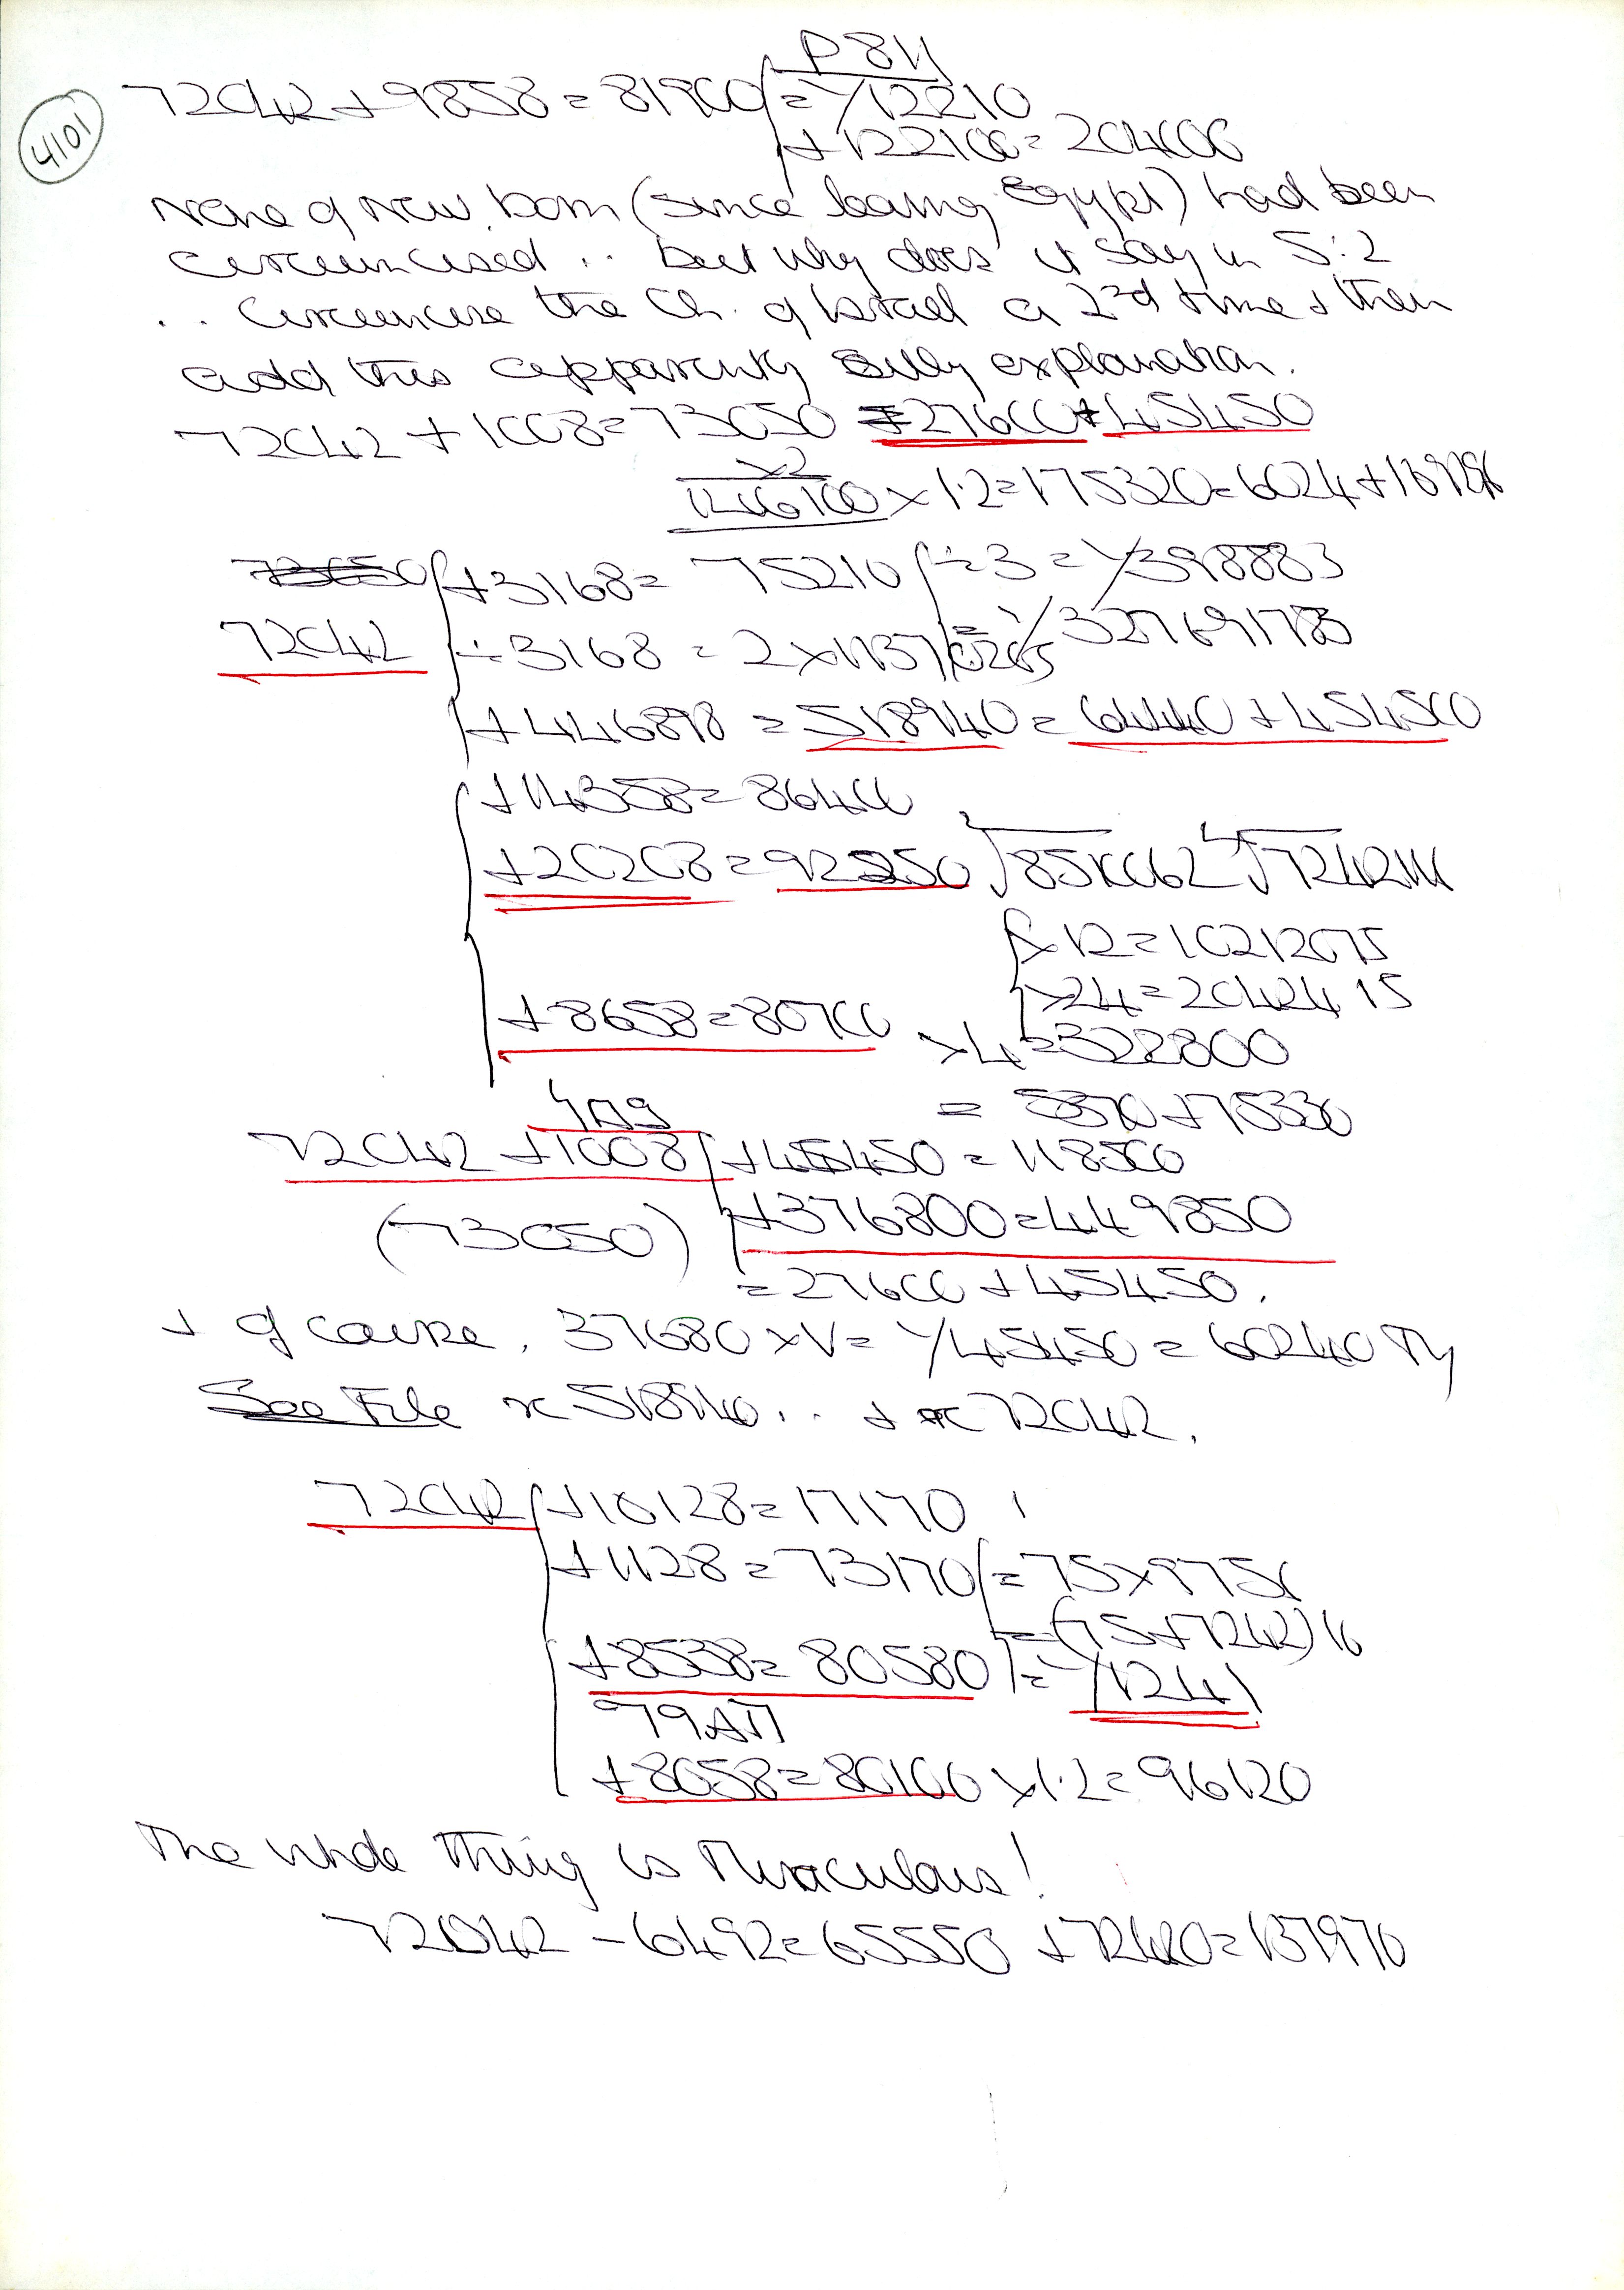 4101
P 811
72042 + 9858 = 81900 = 1/12210
+ 122100 = 204000
None of new born (since leaving Egypt) had been
circumcised .. but why does it say in 5:2
.. Circumcise the Ch. of Israel a 2nd time & then
add this apparently silly explanation.
72042 + 1008 = 73050 = 27600 + 45450
x2
146100 x 1.2 = 175320 = 6024 +
73050 + 3168 = 75210 ÷ 3 = 1/398883
72042 ÷ 3168 = 2 x = 1/327691783
+ 446898 = 518940 = 64440 + 454500
+ 14358 = 86400
+ 20208 = 92250 √851062 ∜7242
x 12 = 10212075
x 24 = 2042415
+ 8658 = 80700 x 4 = 322800
= + 75330
72042 + 1008 + 45450 = 118500
(73050) + 376800 = 449850
= 27600 + 45450.
+ of course, 37680 x V = 1/45450 = 60240
See File x 518940 .. + x 72042.
72042 + 10128 = 17170
+ 1128 = 73170 = 75 x 9756
= (75 + 7242) 16
+ 8538 = 80580 = 1/1241
+ 8058 = 80100 x 1.2 = 96120
The whole Thing is Miraculous!
72042 - 6492 = 65550 + 72420 = 137970